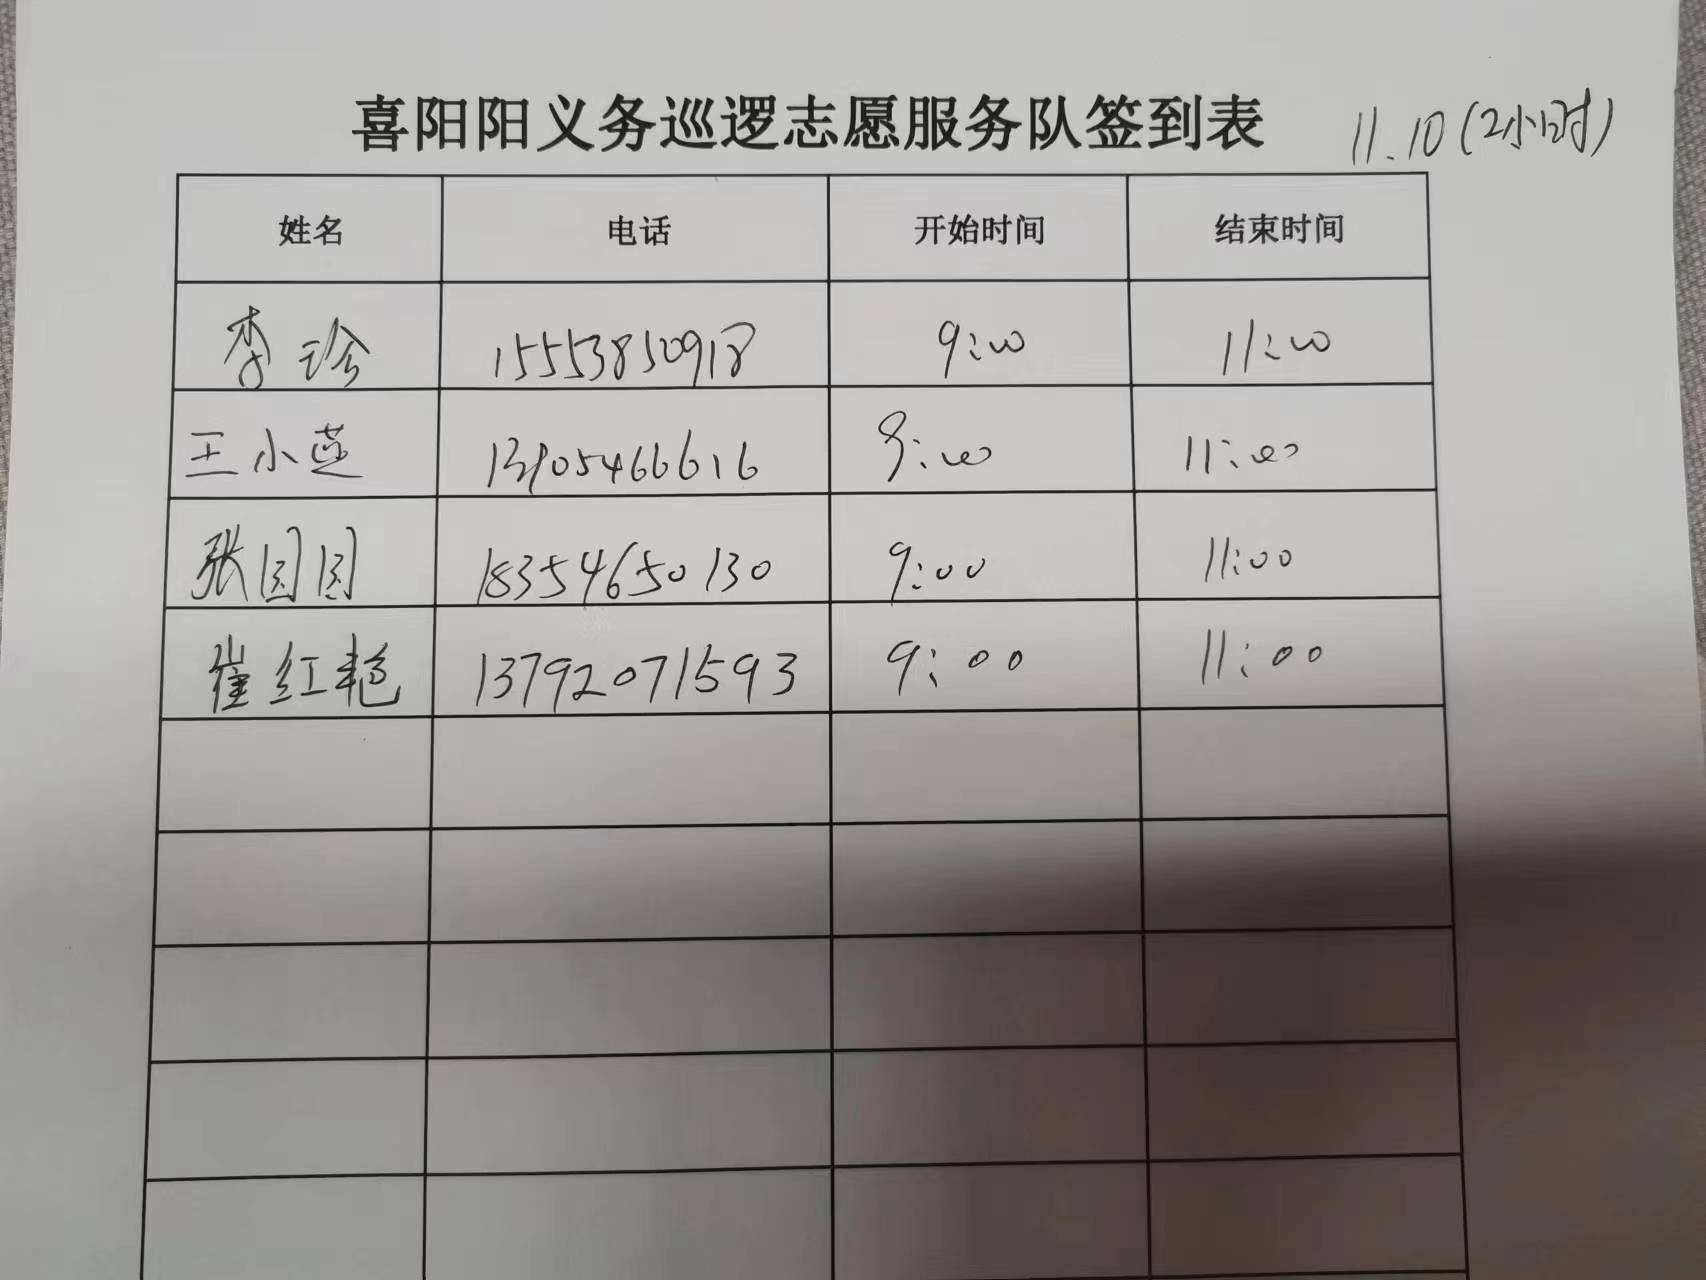 喜阳阳义务巡逻志愿服务队签到表 11.10(2小时)
姓名 电话 开始时间 结束时间
李珍 15553850918 9:00 11:00
王小芝 13905466616 9:00 11:00
张园园 18354650130 9:00 11:00
崔红艳 13792071593 9:00 11:00